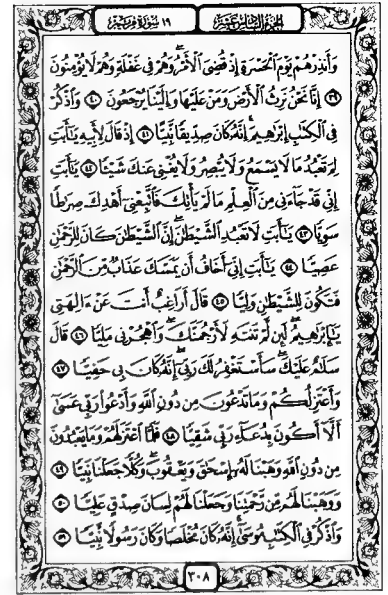 الجزء السادس عشر
١٩ سورة مريم
وَأَنذِرْهُمْ يَوْمَ الْحَسْرَةِ إِذْ قُضِيَ الْأَمْرُ وَهُمْ فِي غَفْلَةٍ وَهُمْ لَا يُؤْمِنُونَ
٣٩ إِنَّا نَحْنُ نَرِثُ الْأَرْضَ وَمَنْ عَلَيْهَا وَإِلَيْنَا يُرْجَعُونَ ٤٠ وَاذْكُرْ
فِي الْكِتَٰبِ إِبْرَٰهِيمَ إِنَّهُ كَانَ صِدِّيقًا نَّبِيًّا ٤١ إِذْ قَالَ لِأَبِيهِ يَٰأَبَتِ
لِمَ تَعْبُدُ مَا لَا يَسْمَعُ وَلَا يُبْصِرُ وَلَا يُغْنِي عَنكَ شَيْئًا ٤٢ يَٰأَبَتِ
إِنِّي قَدْ جَاءَنِي مِنَ الْعِلْمِ مَا لَمْ يَأْتِكَ فَاتَّبِعْنِي أَهْدِكَ صِرَٰطًا
سَوِيًّا ٤٣ يَٰأَبَتِ لَا تَعْبُدِ الشَّيْطَٰنَ إِنَّ الشَّيْطَٰنَ كَانَ لِلرَّحْمَٰنِ
عَصِيًّا ٤٤ يَٰأَبَتِ إِنِّي أَخَافُ أَن يَمَسَّكَ عَذَابٌ مِّنَ الرَّحْمَٰنِ
فَتَكُونَ لِلشَّيْطَٰنِ وَلِيًّا ٤٥ قَالَ أَرَاغِبٌ أَنتَ عَنْ ءَالِهَتِي
يَٰإِبْرَٰهِيمُ لَئِن لَّمْ تَنتَهِ لَأَرْجُمَنَّكَ وَاهْجُرْنِي مَلِيًّا ٤٦ قَالَ
سَلَٰمٌ عَلَيْكَ سَأَسْتَغْفِرُ لَكَ رَبِّي إِنَّهُ كَانَ بِي حَفِيًّا ٤٧
وَأَعْتَزِلُكُمْ وَمَا تَدْعُونَ مِن دُونِ اللَّهِ وَأَدْعُوا رَبِّي عَسَىٰ
أَلَّا أَكُونَ بِدُعَاءِ رَبِّي شَقِيًّا ٤٨ فَلَمَّا اعْتَزَلَهُمْ وَمَا يَعْبُدُونَ
مِن دُونِ اللَّهِ وَهَبْنَا لَهُ إِسْحَٰقَ وَيَعْقُوبَ وَكُلًّا جَعَلْنَا نَبِيًّا ٤٩
وَوَهَبْنَا لَهُم مِّن رَّحْمَتِنَا وَجَعَلْنَا لَهُمْ لِسَانَ صِدْقٍ عَلِيًّا ٥٠
وَاذْكُرْ فِي الْكِتَٰبِ مُوسَىٰ إِنَّهُ كَانَ مُخْلَصًا وَكَانَ رَسُولًا نَّبِيًّا ٥١
٣٠٨